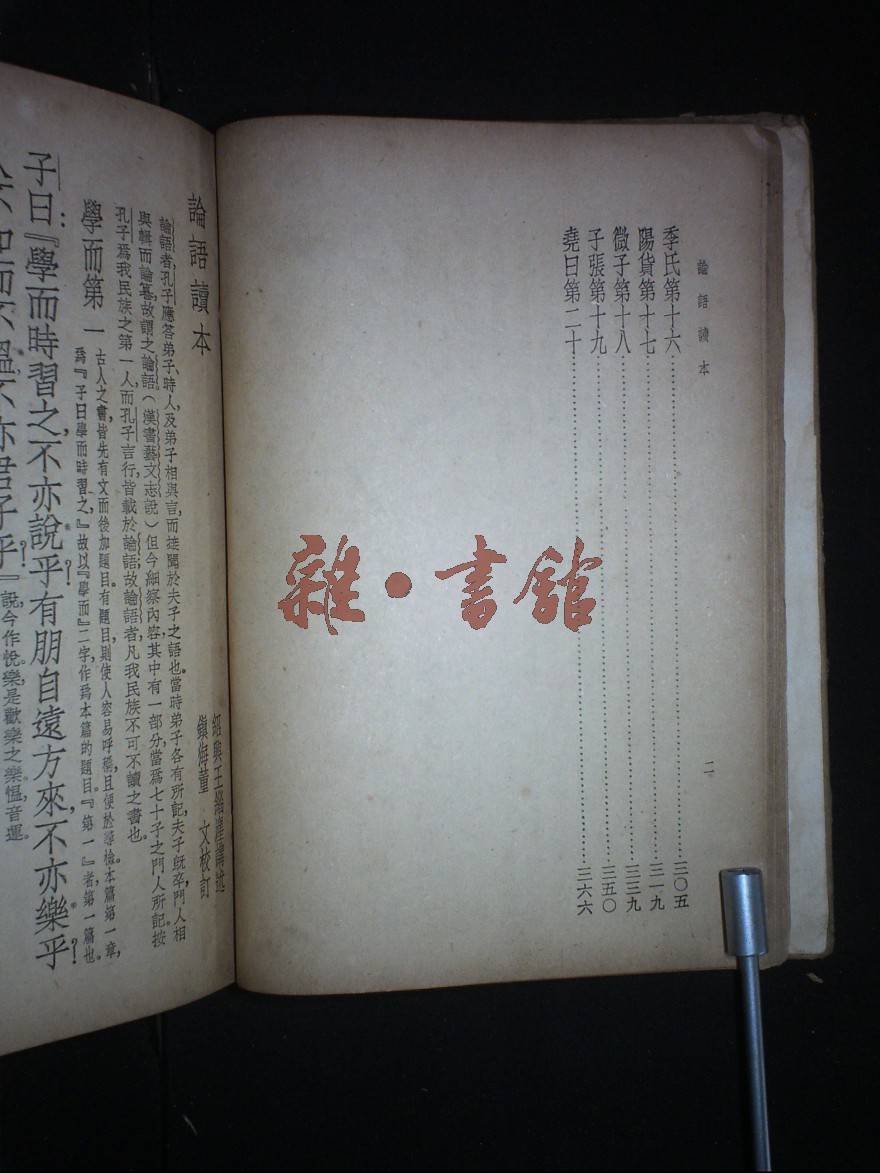 論語讀本
季氏第十六……三〇五
陽貨第十七……三一九
微子第十八……三三九
子張第十九……三五〇
堯曰第二十……三六六
二
雜•書館
論語讀本
鎮海董 文校訂
論語者,孔子應答弟子、時人,及弟子相與言,而接聞於夫子之語也。當時弟子各有所記,夫子旣卒,門人相
與輯而論纂,故謂之論語。(漢書藝文志說)但今細察內容,其中有一部分,當爲七十子之門人所記。按
孔子爲我民族之第一人,而孔子言行,皆載於論語,故論語者,凡我民族不可不讀之書也。
學而第一
古人之書,皆先有文而後加題目。有題目,則使人容易呼稱,且便於尋檢。本篇第一章,
爲『子曰學而時習之,』故以『學而』二字,作爲本篇的題目。『第一』者,第一篇也。
子曰:『學而時習之,不亦說乎?有朋自遠方來,不亦樂乎?
不知而不慍,不亦君子乎?』說,今作悅。樂,是歡樂之樂。慍,音運。